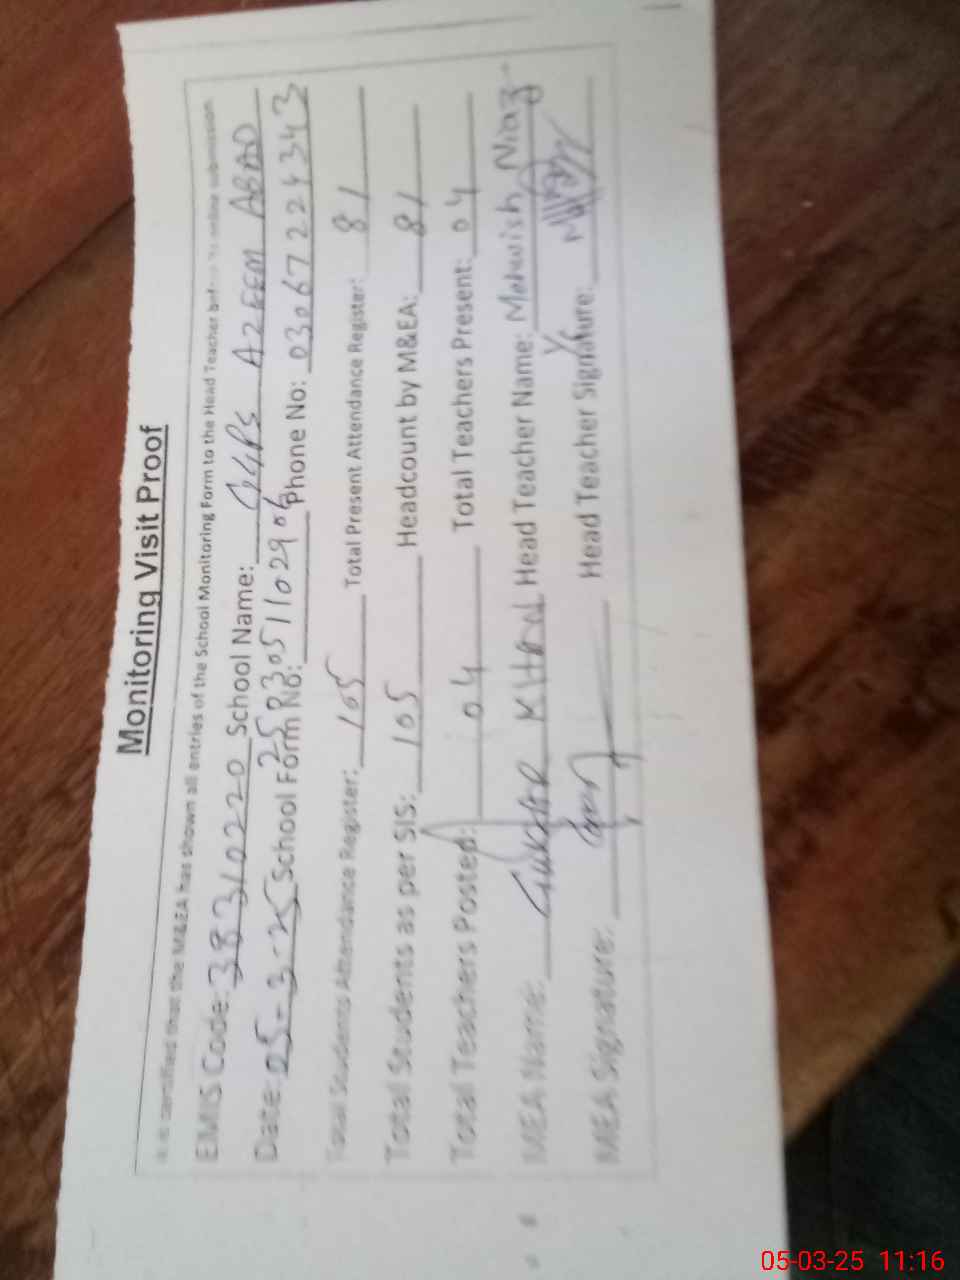 Monitoring Visit Proof
It is certified that the M&EA has shown all entries of the School Monitoring Form to the Head Teacher before its online submission
EMIS Code: 38310220 School Name: GGPS AZEEM ABAD
Date: 05-3-25 School Form No: 250305110290 Phone No: 03067224343
Total Students Attendance Register: 105 Total Present Attendance Register: 81
Total Students as per SIS: 105 Headcount by M&EA: 81
Total Teachers Posted: 04 Total Teachers Present: 04
MEA Name: KHAN Head Teacher Name: Mehwish Niaz
MEA Signature: Head Teacher Signature:
05-03-25 11:16